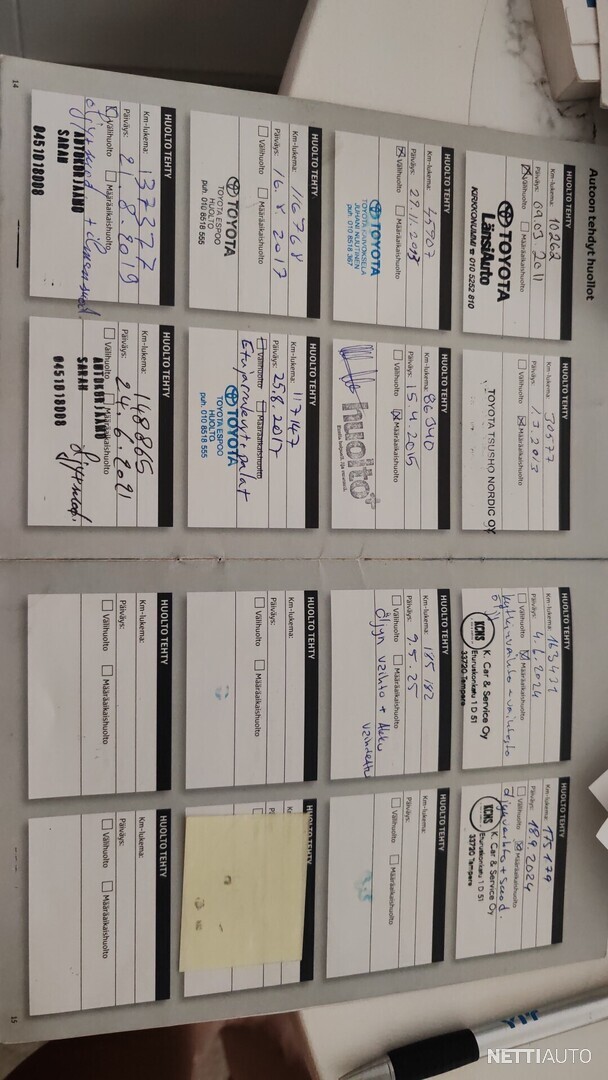 Autoon tehdyt huollot
HUOLTO TEHTY
Km-lukema: 10202
Päiväys: 09.03 2011
Välihuolto Määräaikaishuolto
TOYOTA
LänsiAuto
KIRKKONUMMI ☎ 010 5252 810
HUOLTO TEHTY
Km-lukema: 30577
Päiväys: 1.3.2013
Välihuolto Määräaikaishuolto
TOYOTA TSUSHO NORDIC OY
HUOLTO TEHTY
Km-lukema: 45907
Päiväys: 29.11.2013
Välihuolto Määräaikaishuolto
TOYOTA
TOYOTA KAIVOKSELA
JUHANI NUUTINEN
puh. 010 8518 367
HUOLTO TEHTY
Km-lukema: 86340
Päiväys: 15.4.2015
Välihuolto Määräaikaishuolto
huolto+
HUOLTO TEHTY
Km-lukema: 116768
Päiväys: 16.8.2017
Välihuolto Määräaikaishuolto
TOYOTA
TOYOTA ESPOO
HUOLTO
puh. 010 8518 555
HUOLTO TEHTY
Km-lukema: 117147
Päiväys: 25.8.2017
Välihuolto Määräaikaishuolto
Etujarrulevyt+palat
TOYOTA
TOYOTA ESPOO
HUOLTO
puh. 010 8518 555
HUOLTO TEHTY
Km-lukema: 137377
Päiväys: 21.8.2019
Välihuolto Määräaikaishuolto
AUTOKORJAAMO
SARAN
0451018008
HUOLTO TEHTY
Km-lukema: 148865
Päiväys: 24.6.2021
Välihuolto Määräaikaishuolto
AUTOKORJAAMO
SARAN
0451018008
14
HUOLTO TEHTY
Km-lukema: 163421
Päiväys: 4.6.2024
Välihuolto Määräaikaishuolto
öljy
KCKS
K. Car & Service Oy
Eturuskonkatu 1 D 51
33720 Tampere
HUOLTO TEHTY
Km-lukema: 175179
Päiväys: 18.9.2024
Välihuolto Määräaikaishuolto
öljynvaihto + suod.
KCKS
K. Car & Service Oy
Eturuskonkatu 1 D 51
33720 Tampere
HUOLTO TEHTY
Km-lukema: 185182
Päiväys: 9.5.25
Välihuolto Määräaikaishuolto
öljyn vaihto + Akku
vaihdettu
HUOLTO TEHTY
Km-lukema:
Päiväys:
Välihuolto Määräaikaishuolto
HUOLTO TEHTY
Km-lukema:
Päiväys:
Välihuolto Määräaikaishuolto
HUOLTO TEHTY
HUOLTO TEHTY
Km-lukema:
Päiväys:
Välihuolto Määräaikaishuolto
HUOLTO TEHTY
Km-lukema:
Päiväys:
Välihuolto Määräaikaishuolto
15
YIT
NETTIAUTO